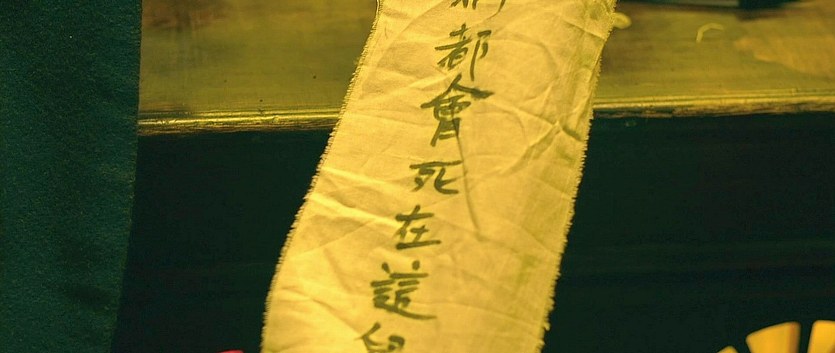 都會死在這兒